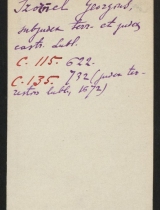 Georgius,
subjudex terr. et judex
castr. Lubl.
C. 115. 622.
C. 135. 732 (judex ter-
restris lubl., 1672)